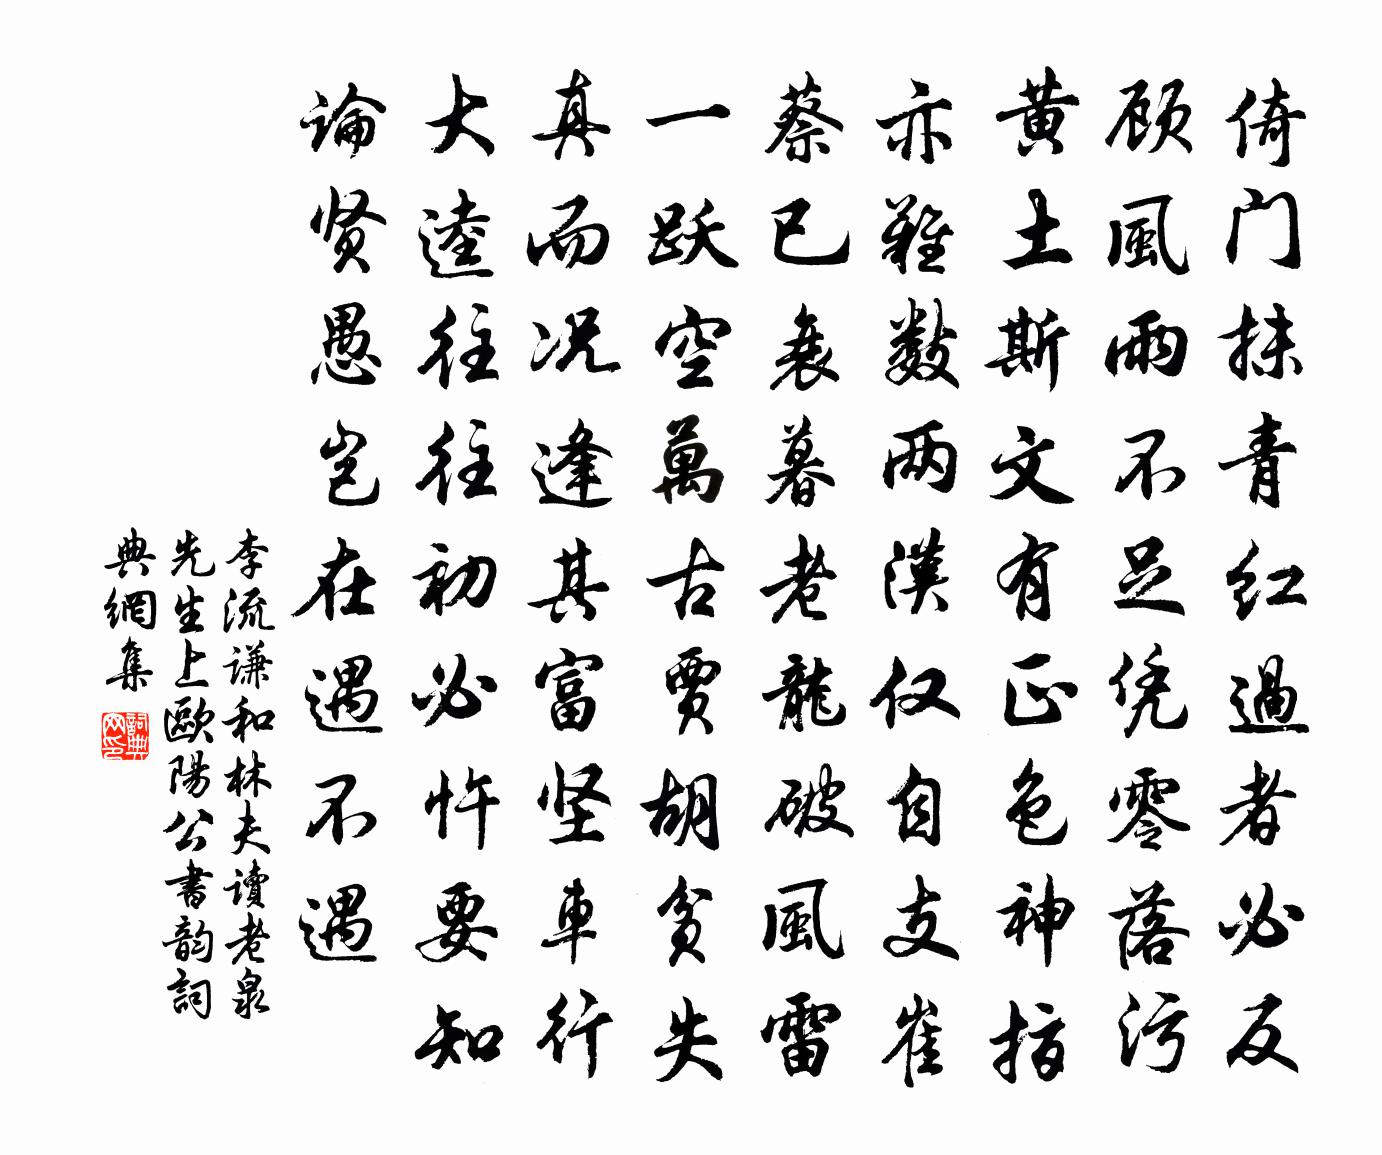 倚门抹青红過者必反
顾風雨不足凭零落污
黄土斯文有正色神指
亦難数两漢仅自支崔
蔡已衰暮老龍破風雷
一跃空萬古贾胡贫失
真而况逢其富坚車行
大逵往往初必忤要知
論贤愚岂在遇不遇
李流谦和林夫讀老泉
先生上歐陽公書韵詞
典網集
詞典
网印